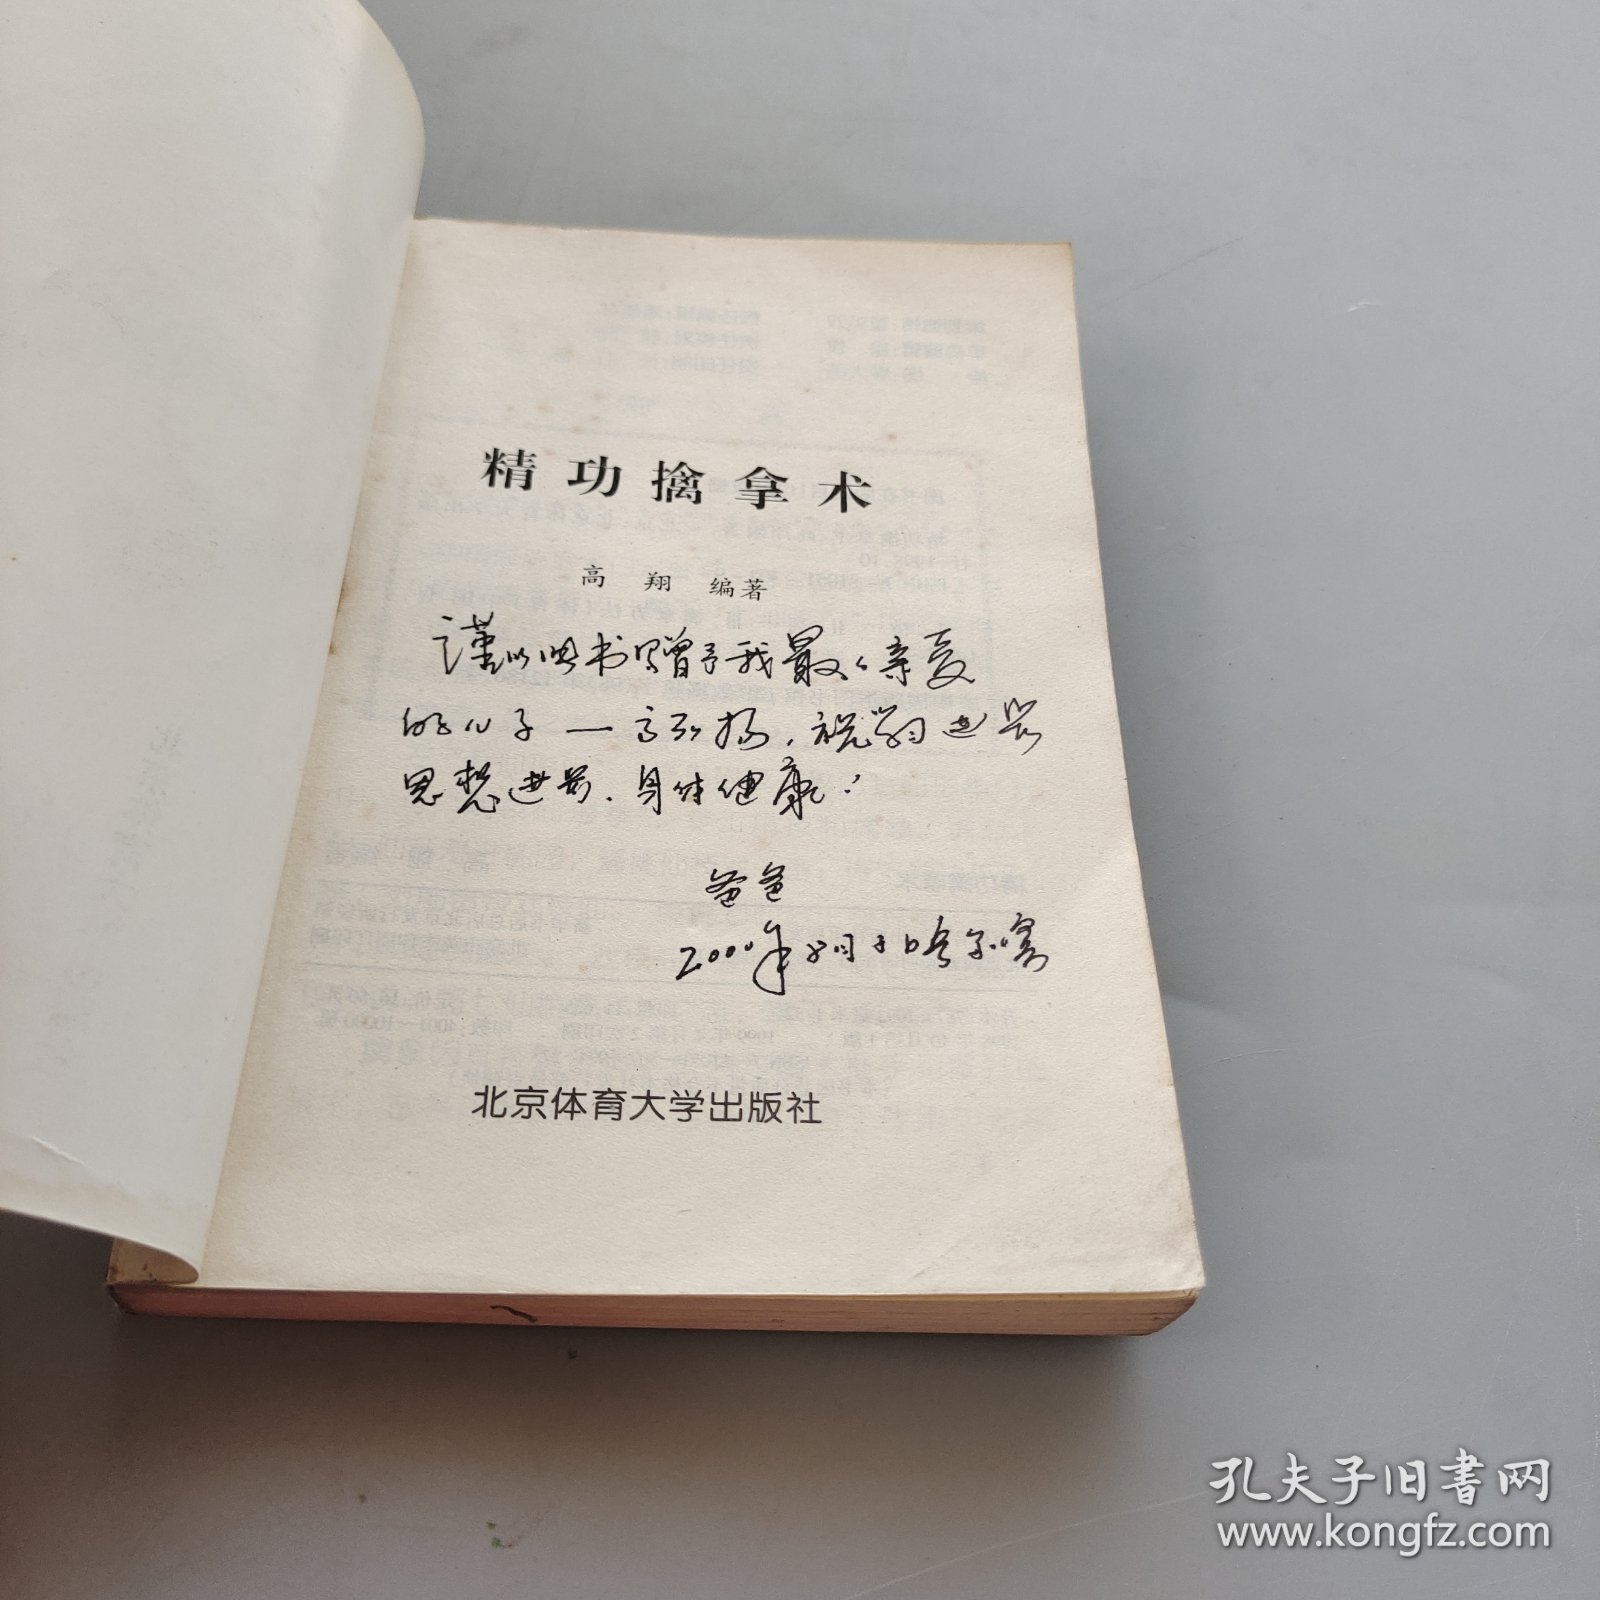 精功擒拿术
高翔 编著
谨以此书赠予我最最亲爱
的儿子—高弘扬，祝学习进步
思想进步、身体健康！
爸爸
2000年8月于哈尔滨
北京体育大学出版社
孔夫子旧书网
www.kongfz.com